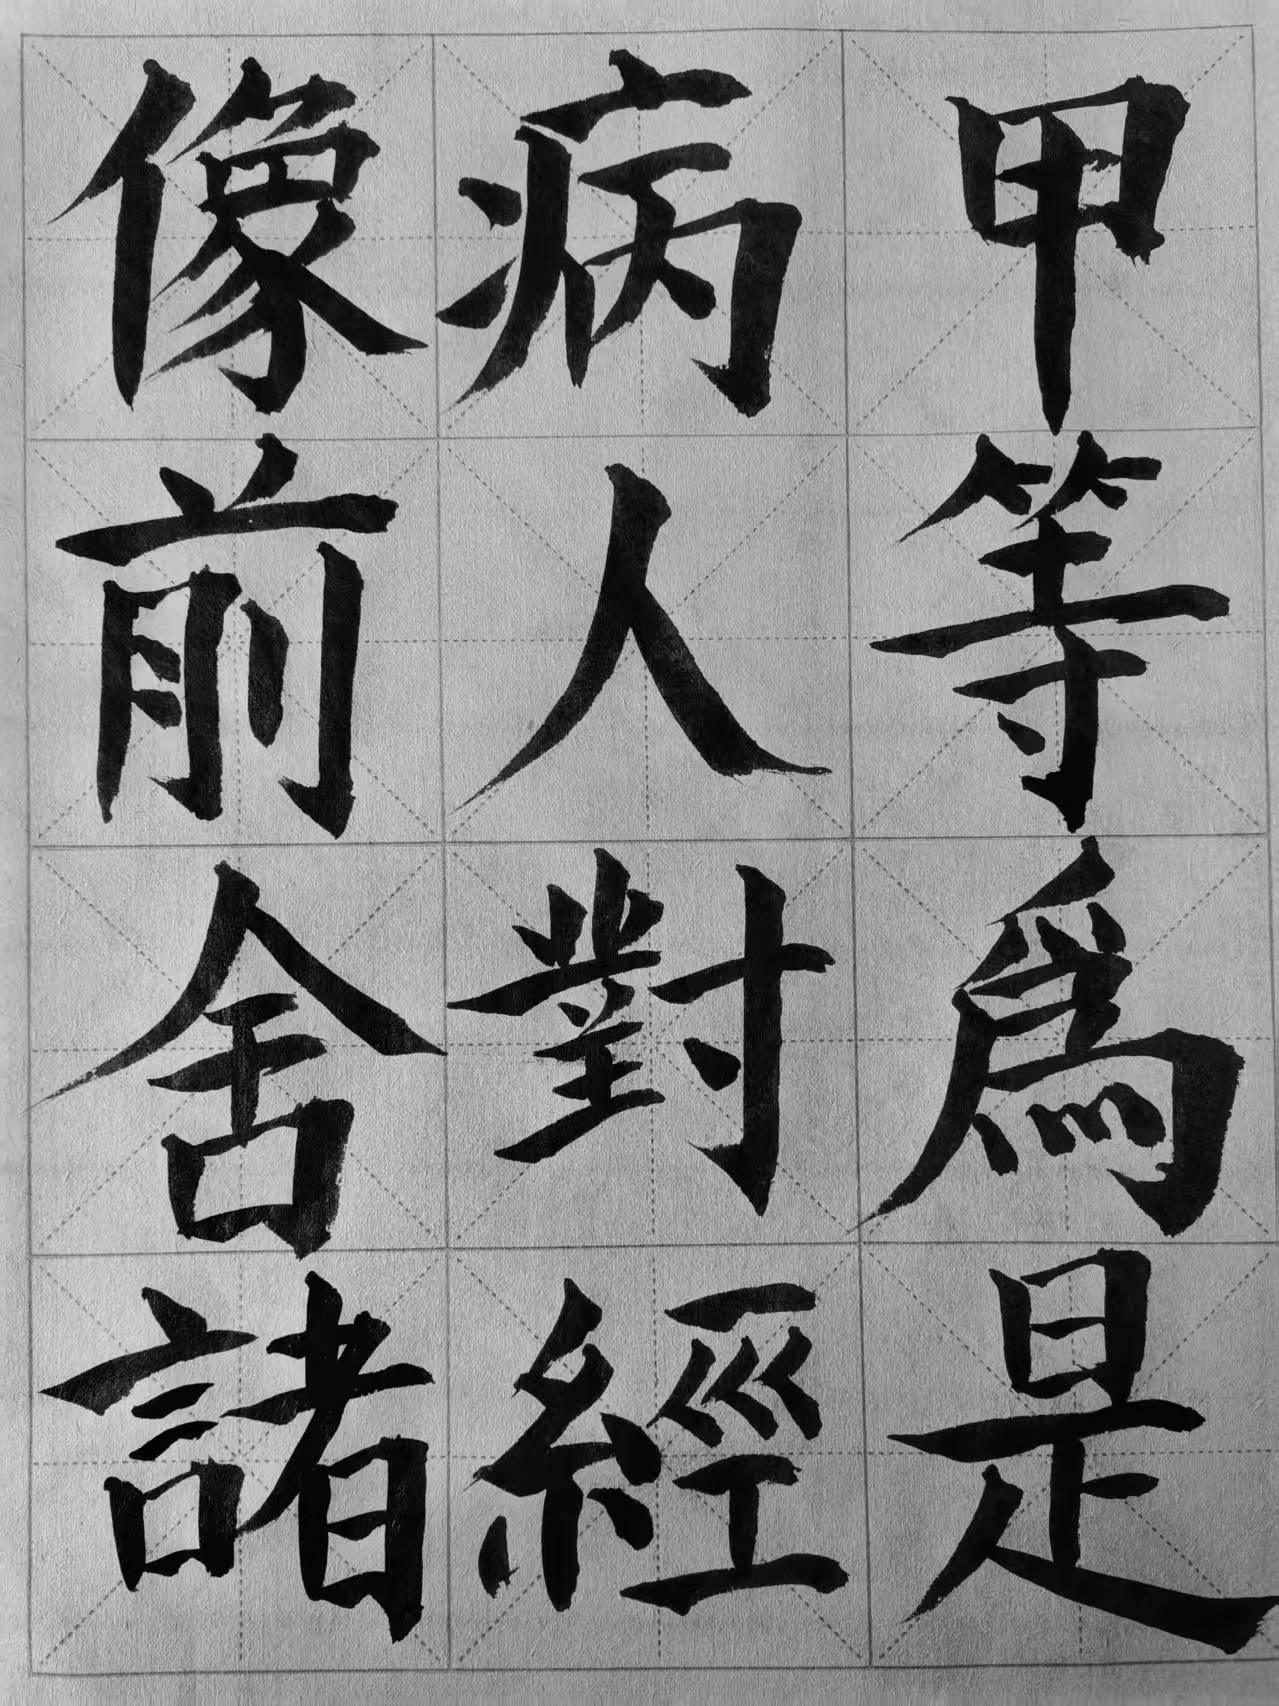 甲等爲是
病人對經
像前舍諸